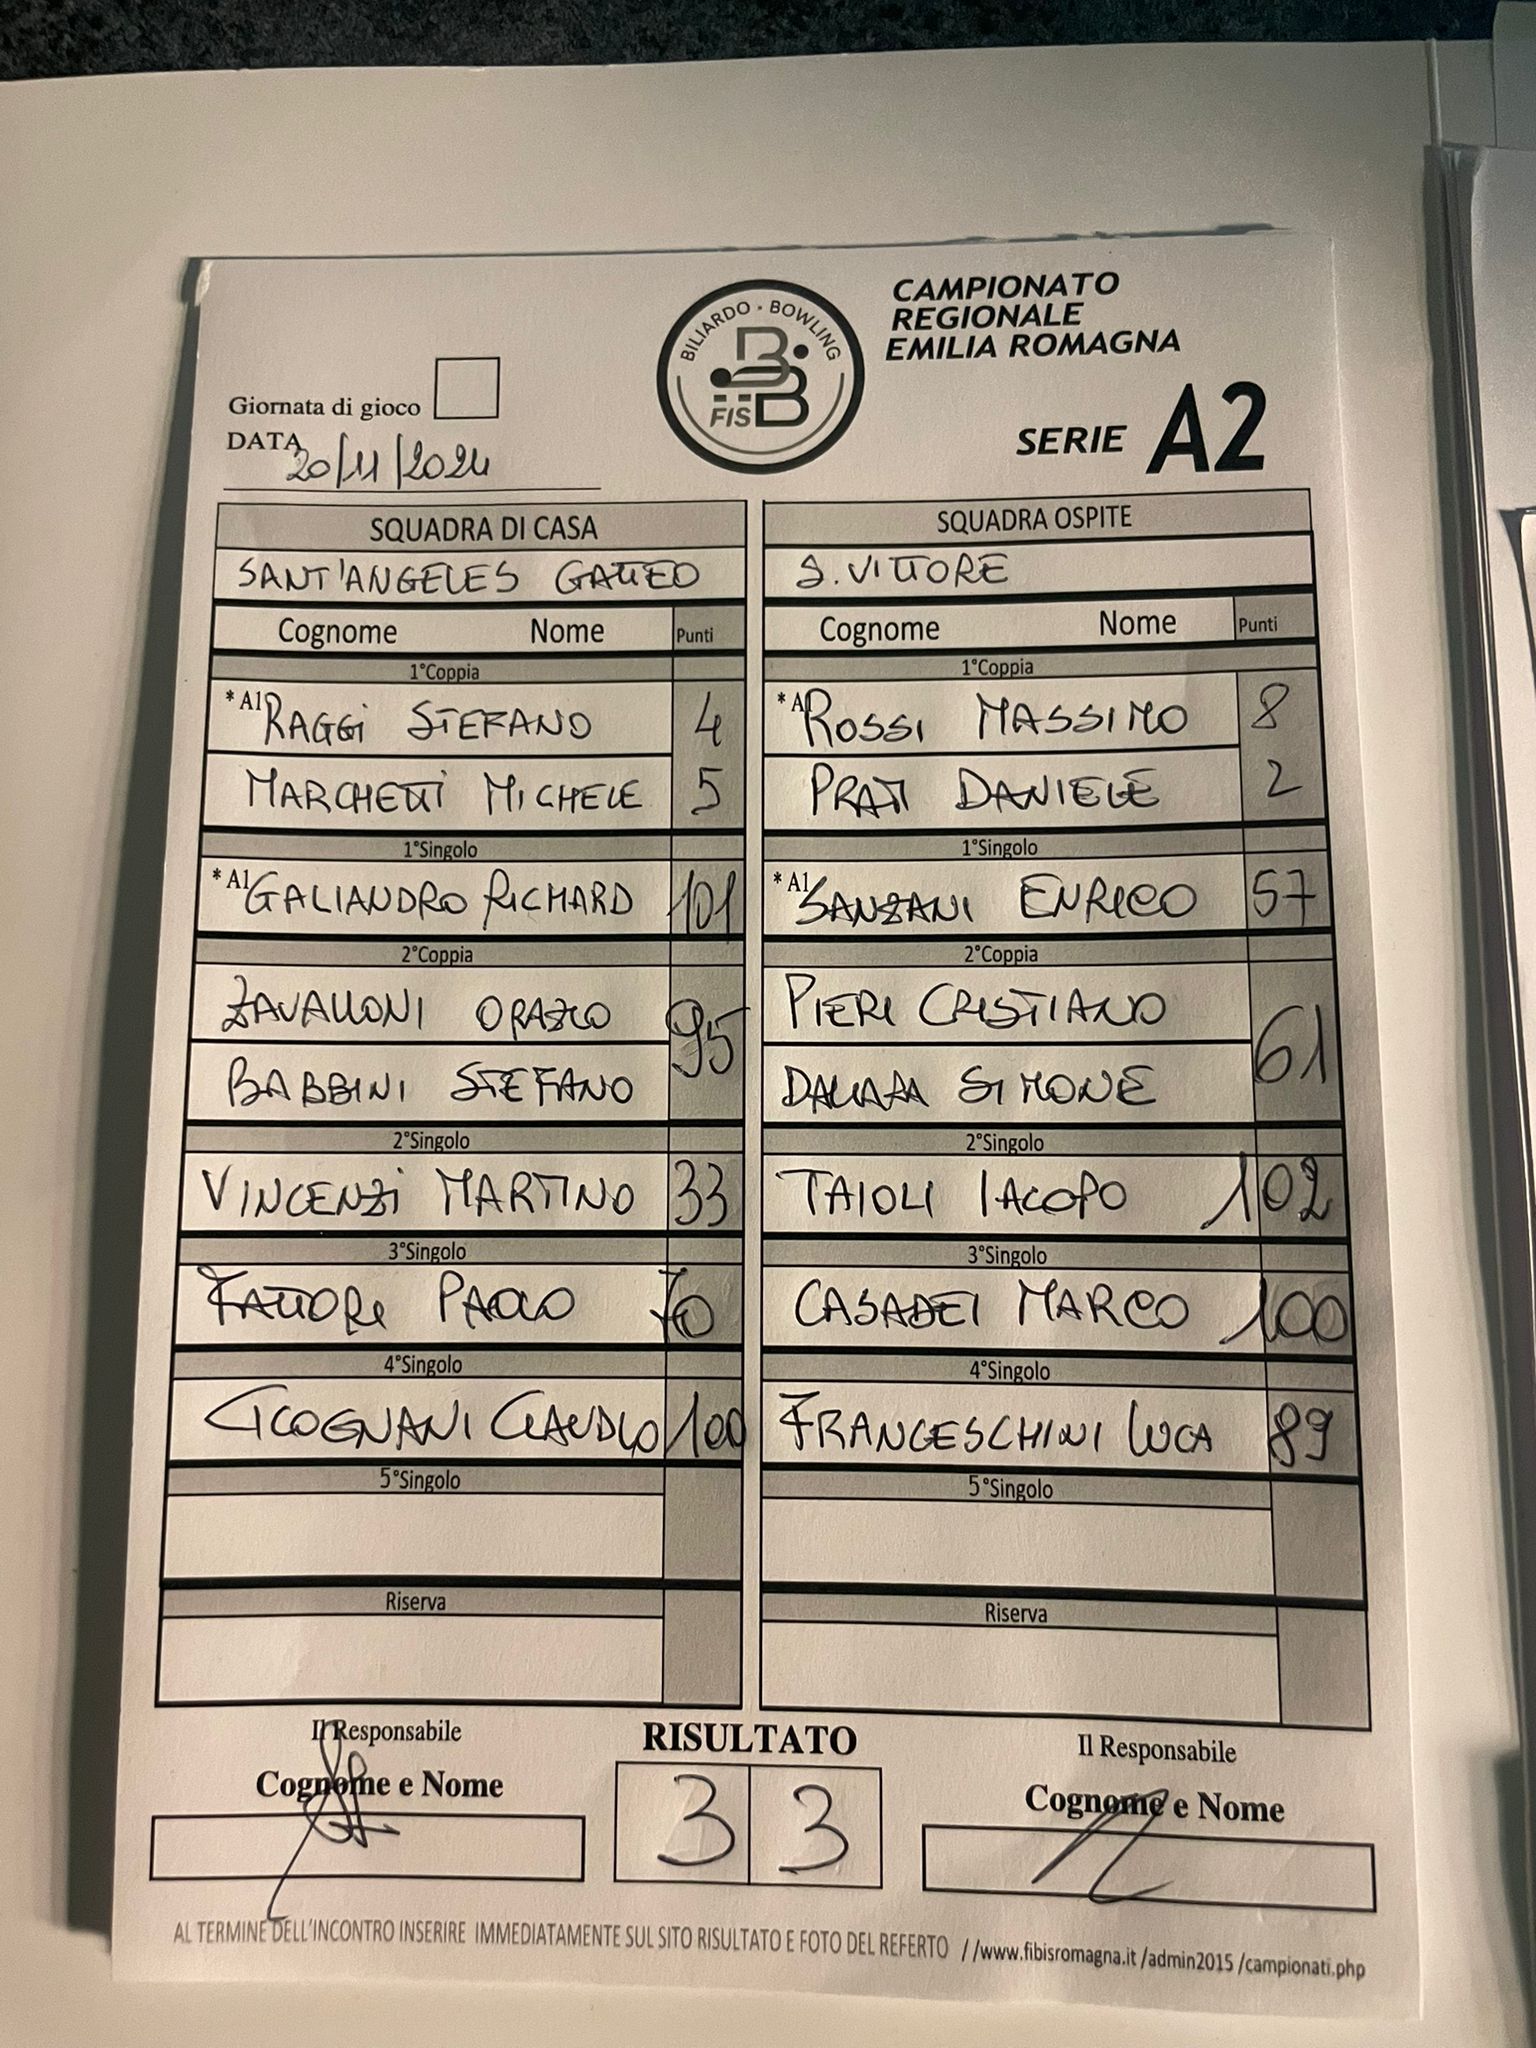 BILIARDO - BOWLING
FISBB
CAMPIONATO
REGIONALE
EMILIA ROMAGNA
SERIE A2
Giornata di gioco
DATA 20/11/2024
SQUADRA DI CASA
SANT'ANGELES GATTEO
Cognome Nome Punti
1°Coppia
*A1 RAGGI STEFANO 4
MARCHETTI MICHELE 5
1°Singolo
*A1 GALIANDRO RICHARD 101
2°Coppia
ZAVALLONI ORAZIO 95
BABBINI STEFANO
2°Singolo
VINCENZI MARTINO 33
3°Singolo
FATTORI PAOLO 70
4°Singolo
CICOGNANI CLAUDIO 100
5°Singolo
Riserva
SQUADRA OSPITE
S. VITTORE
Cognome Nome Punti
1°Coppia
*A1 ROSSI MASSIMO 8
PRATI DANIELE 2
1°Singolo
*A1 SANZANI ENRICO 57
2°Coppia
PIERI CRISTIANO 61
SIMONE
2°Singolo
TAIOLI IACOPO 102
3°Singolo
CASADEI MARCO 100
4°Singolo
FRANCESCHINI LUCA 89
5°Singolo
Riserva
Il Responsabile
Cognome e Nome
RISULTATO
3 3
Il Responsabile
Cognome e Nome
AL TERMINE DELL'INCONTRO INSERIRE IMMEDIATAMENTE SUL SITO RISULTATO E FOTO DEL REFERTO //www.fibisromagna.it /admin2015 /campionati.php